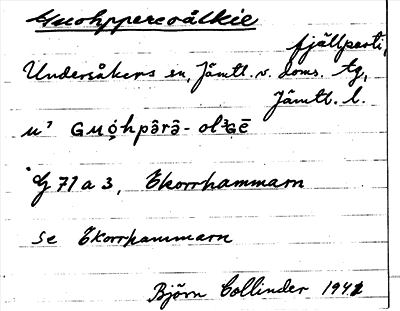 Guohpperåålkie
fjällparti,
Undersåkers sn, Jämtl. v. doms. tg,
Jämtl. l.
Guo̧hpârâ-olᵌGē
G 71 a 3, Ekorrhammarn
se Ekorrhammarn
Björn Collinder 1942